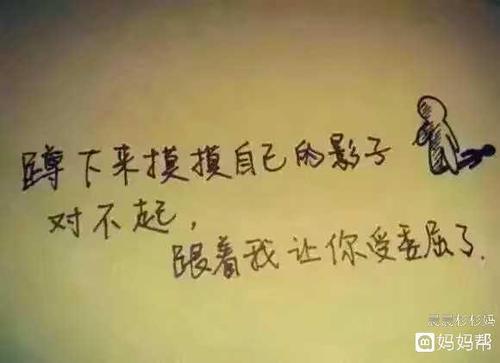 蹲下来摸摸自己的影子
对不起，
跟着我让你受委屈了.
晨晨杉杉妈
妈妈帮